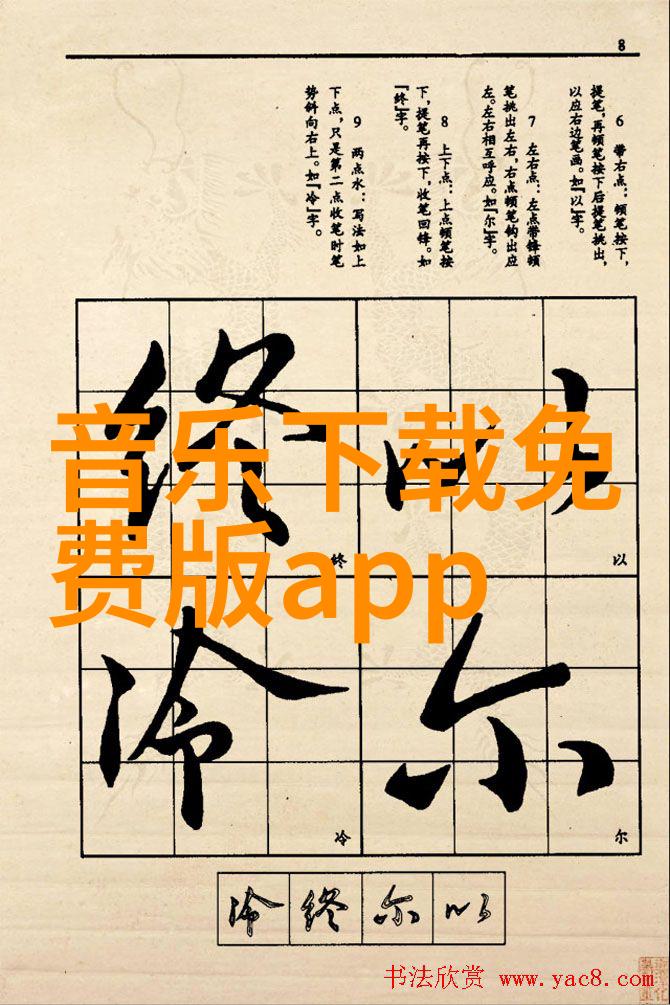 8
6 带右点：顿笔按下，
提笔，再顿笔按下后提笔挑出，
以应右边笔画。如『以』字。
7 左右点：左点带锋顿
笔挑出左右，右点顿笔钩出应
左。左右相互呼应。如『尔』字。
8 上下点：上点顿笔按
下，提笔再按下，收笔回锋。如
『终』字。
9 两点水：写法如上
下点，只是第二点收笔时笔
势斜向右上。如『冷』字。
音乐下载免
费版app
终 以
终 以
冷 尔
冷 尔
冷 终 尔 以
书法欣赏 www.yac8.com